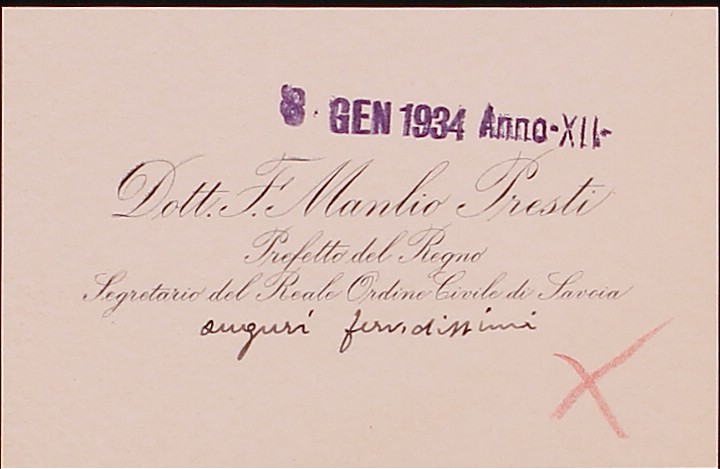 8 GEN 1934 Anno-XII-
Dott. F. Manlio Presti
Prefetto del Regno
Segretario del Reale Ordine Civile di Savoia
auguri fervidissimi